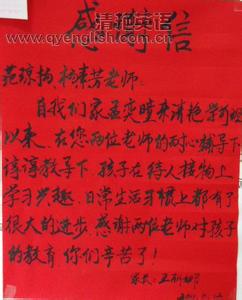 清艳英语
www.qyenglish.com.cn
感谢信
范琼扬、林素芳老师:
自我们家孟奕晴来清艳学习班
以来,在您两位老师的耐心辅导下
谆谆教导下,孩子在待人接物上
学习兴趣、日常生活习惯上都有了
很大的进步,感谢两位老师对孩子
的教育,你们辛苦了!
家长: